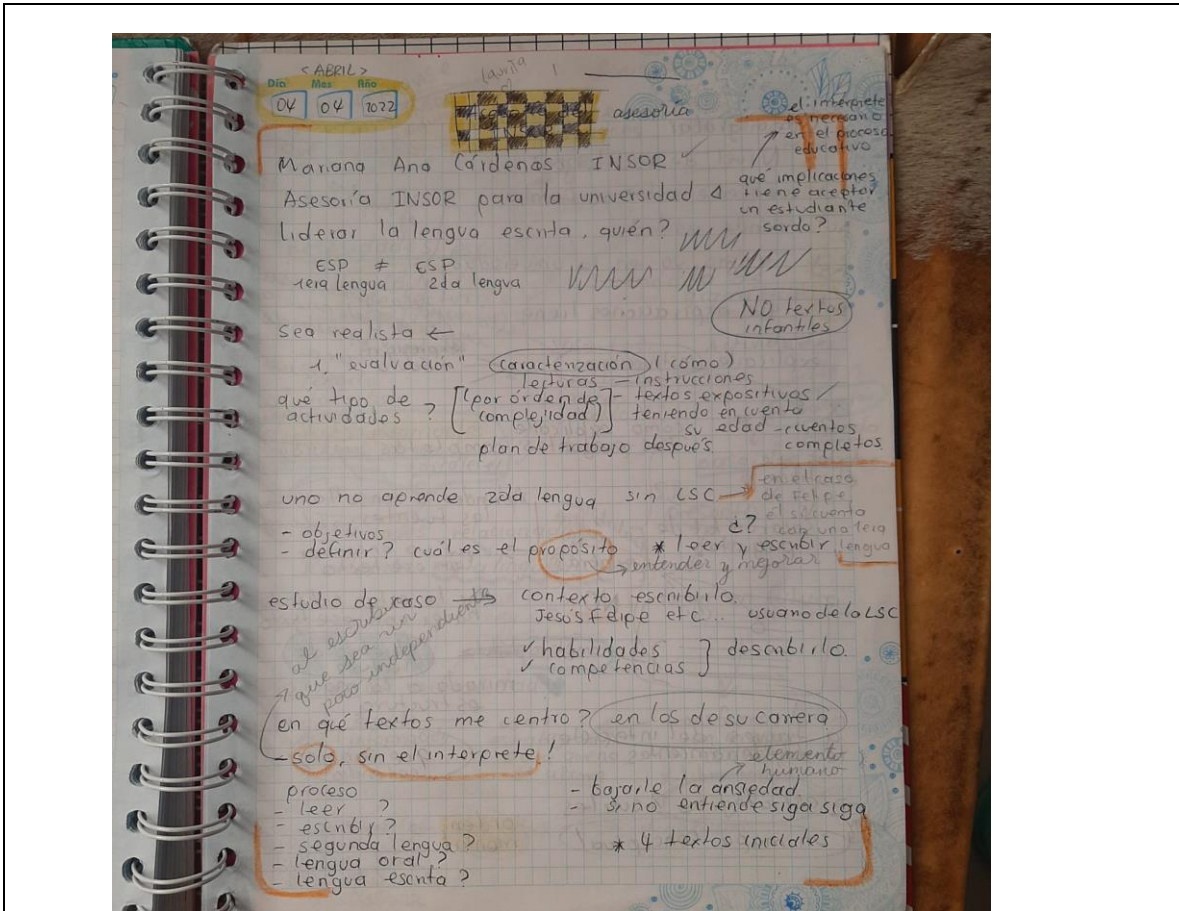 < ABRIL >
Día Mes Año
04 04 2022
asesoría
el interprete
es necesario
en el proceso
educativo
Mariana Ana Cárdenas INSOR ✓
Asesoría INSOR para la universidad
qué implicaciones
tiene aceptar
un estudiante
sordo?
liderar la lengua escrita, quién?
ESP ≠ ESP
1era lengua 2da lengua
NO textos
infantiles
sea realista ←
1. "evaluación" caracterización (cómo)
lecturas - instrucciones
qué tipo de
actividades ?
[(por orden de
complejidad)]
- textos expositivos /
teniendo en cuenta
su edad - cuentos
completos
plan de trabajo después.
uno no aprende 2da lengua sin LSC →
en el caso
de Felipe
él si cuenta
con una 1era
lengua
- objetivos
¿?
- definir? cuál es el propósito * leer y escribir
→ entender y mejorar
estudio de caso → contexto escribirlo.
Jesús Felipe etc.. usuario de la LSC
al escribir
que sea un
poco independiente
✓ habilidades
✓ competencias } describirlo.
en qué textos me centro? en los de su carrera
- solo, sin el interprete!
elemento
humano
proceso
- leer ?
- escribir ?
- segunda lengua ?
- lengua oral ?
- lengua escrita ?
- bajarle la ansiedad.
- si no entiende siga siga
* 4 textos iniciales